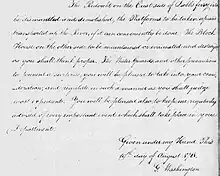 The Redoubt on the East side of Kables ferry, is to
be dismantled and demolished, the Platforms to be taken up and
transported up the River, if it can conveniently be done. The Block
House on the other side to be maintained or evacuated and destroyed
as you shall think proper. The Water guards and other precautions
to prevent a surprise, you will be pleased to take into your consid-
eration, and regulate in such manner as you shall judge
most expedient. You will be pleased also to keep me regularly
advised of every important event which shall take place in your
Department.
Given under my Hand this
19th day of August 1778.
G. Washington